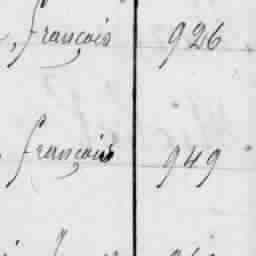 , françois 926
françois 949